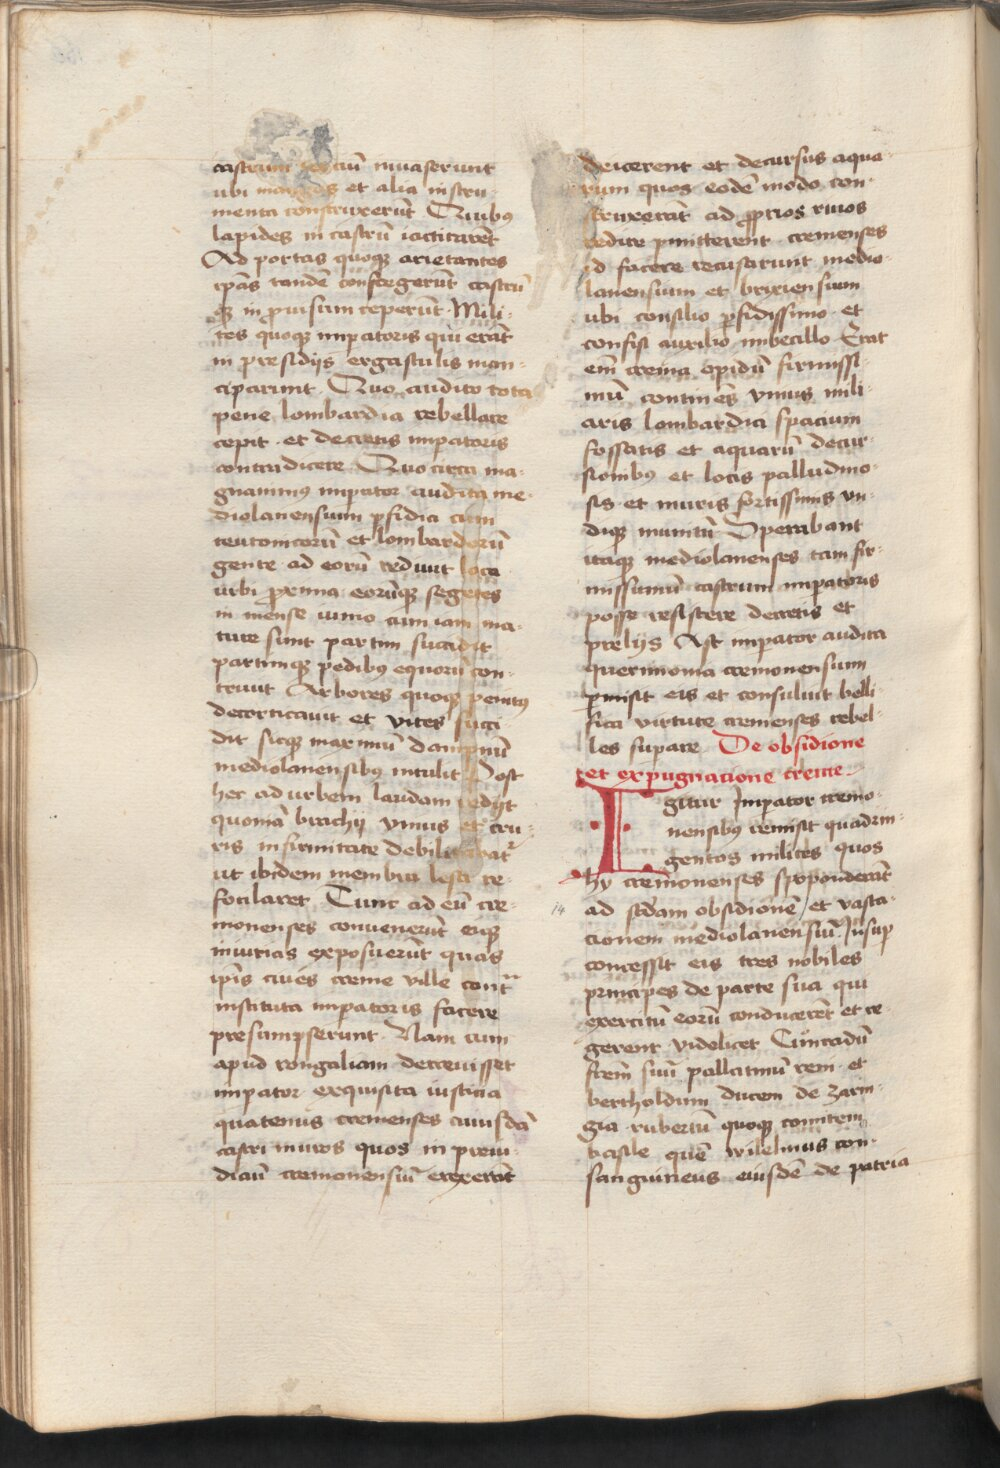 castrum trecium inuaserunt
ubi mangas et alia instru
menta construxerūt Quibꝰ
lapides in castrū iactitarēt
Ad portas quoqꝫ arietantes
ip̄as tandē confregerūt castrū
qꝫ in ꝓuisum ceperūt · Mili
tes quoqꝫ imꝑatoris qui erāt
in presidijs ergastulis man
ciparunt · Quo audito tota
pene lombardia rebellare
cepit · et decretis imꝑatoris
contradicere Quo circa ma
gnanimꝰ imꝑator audita me
diolanensium ꝑfidia cum
teutonicorū et lombardorū
gente ad eorū rediuit loca
urbi ꝓxima eorūqꝫ segetes
in mense iunio cum iam ma
ture sunt partim succidit
partimqꝫ pedibꝰ equorū con
triuit Arbores quoqꝫ penitꝰ
decorticauit et vites succi
dit sicqꝫ maximū dampnū
mediolanensibꝰ intulit Post
hec ad urbem laudam redijt
quoniā brachij vnius et cru
ris infirmitate debilitabatᷣ
ut ibidem membra lesa re
focilaret Tunc ad eū cre
monenses conuenerūt eiqꝫ
iniurias exposuerūt quas
ip̄is ciues creme ville contᷓ
instituta imꝑatoris facere
presumpserunt Nam cum
apud rongaliam decreuisset
imꝑator exquisita iusticia
quatenus cremenses cuiusdā
castri muros quos in preiu
diciū cremonensiū erexerāt
deicerent et decursus aqua
rum quos eodē modo con
struxerāt ad ꝓprios riuos
redire ꝑmitterent cremenses
id facere recusarunt medio
lanensium et brixiensium
ubi consilio ꝑfidissimo et
confisi auxilio imbecillo Erat
em̄ crema opidū firmissi
mū continēs vnius mili
aris lombardici spacium
fossatis et aquarū decur
sionibꝰ et locis palludino
sis et muris fortissimis vn
diqꝫ munitū Sperabant
itaqꝫ mediolanenses tam fir
missimū castrum imꝑatoris
posse resistere decretis et
prelijs Ast imꝑator audita
querimonia cremonensium
ꝓmisit eis et consuluit belli
fica virtute cremenses rebel
les suꝑare De obsidione
et expugnatione creme
Igitur Imꝑator cremo
nensibꝰ remisit quadrin
gentos milites quos
hy cremonenses spoponderāt
14
ad sc̄dam obsidionē et vasta
cionem mediolanensiū Insuꝑ
concessit eis tres nobiles
principes de parte sua qui
exercitū eorū conducerēt et re
gerent videlicet Cunradū
fr̄em suū pallatinū reni et
bertholdum ducem de zarin
gia rubertū quoqꝫ comitem
basile quē wilelmus con
sanguineus eiusdē de patria